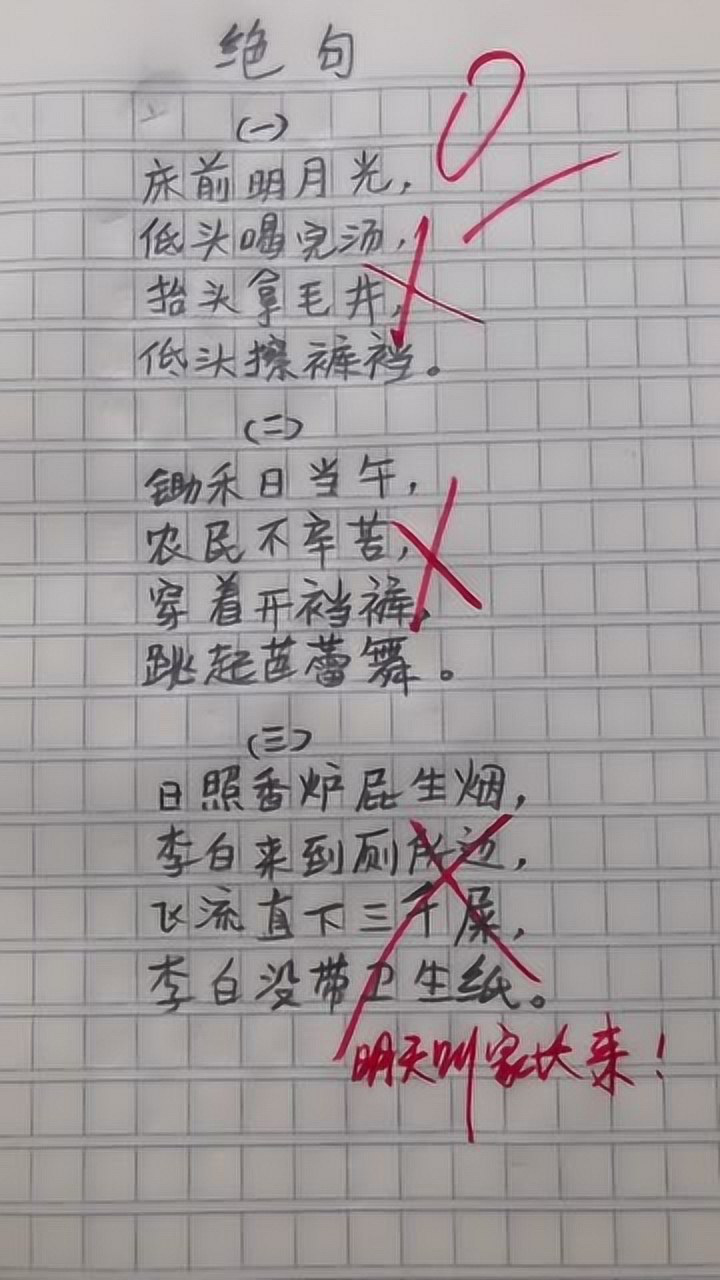 绝句
0
(一)
床前明月光,
低头喝完汤,
抬头拿毛井,
低头擦裤裆。
(二)
锄禾日当午,
农民不辛苦,
穿着开裆裤,
跳起芭蕾舞。
(三)
日照香炉屁生烟,
李白来到厕所边,
飞流直下三千屎,
李白没带卫生纸。
明天叫家长来!